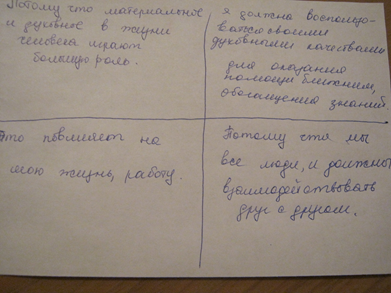 Потому что материальное
и духовное в жизни
человека играют
большую роль.
я должна воспользо-
ваться своими
духовными качествами
для оказания
помощи ближним,
обогащения знаний.
это повлияет на
мою жизнь, работу.
Потому что мы
все люди, и должны
взаимодействовать
друг с другом.